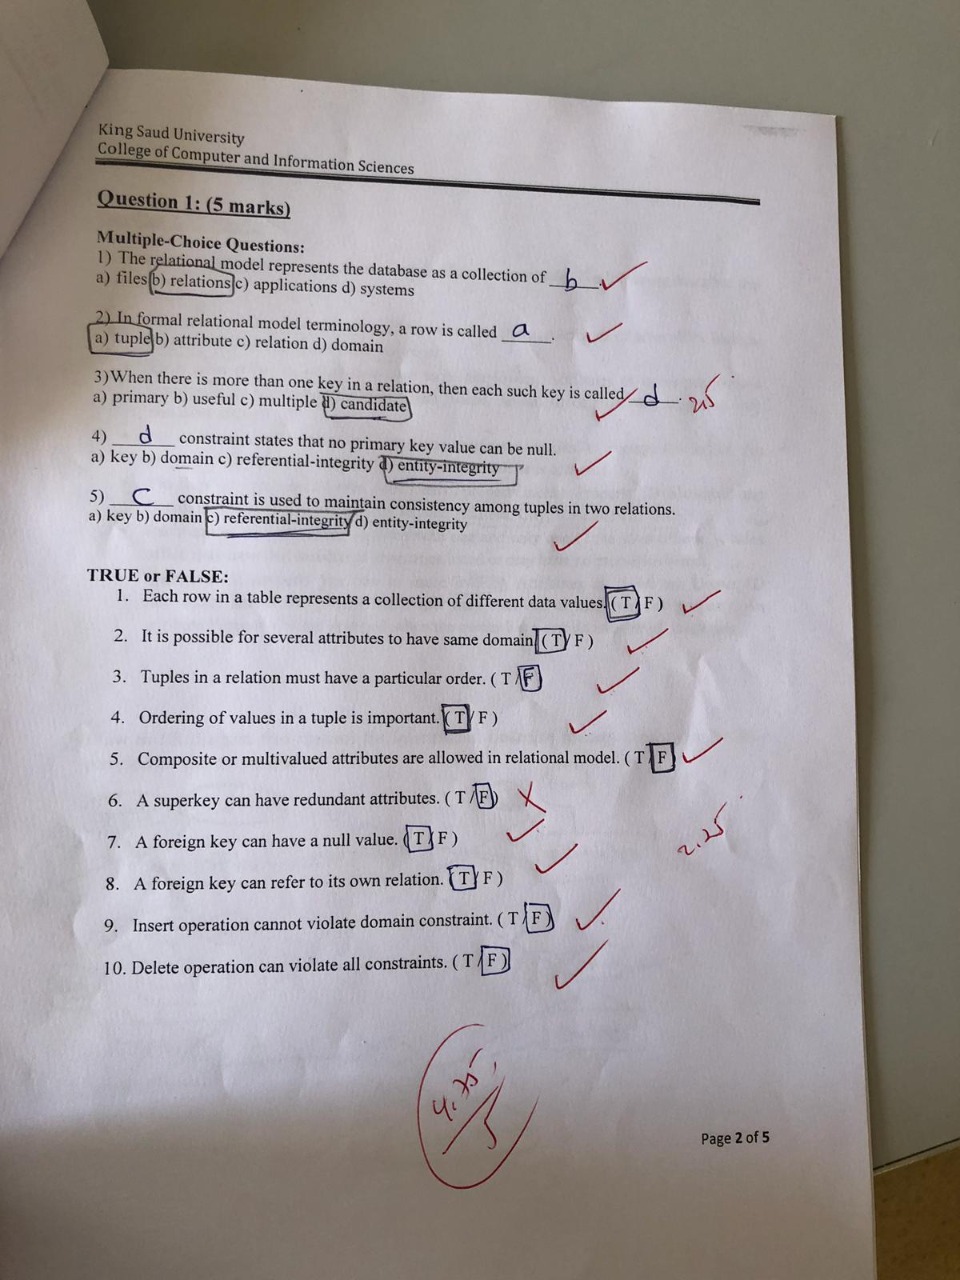 King Saud University
College of Computer and Information Sciences
Question 1: (5 marks)
Multiple-Choice Questions:
1) The relational model represents the database as a collection of b .
a) files b) relations c) applications d) systems
2) In formal relational model terminology, a row is called a .
a) tuple b) attribute c) relation d) domain
3)When there is more than one key in a relation, then each such key is called d .
a) primary b) useful c) multiple d) candidate
2.5
4) d constraint states that no primary key value can be null.
a) key b) domain c) referential-integrity d) entity-integrity
5) C constraint is used to maintain consistency among tuples in two relations.
a) key b) domain c) referential-integrity d) entity-integrity
TRUE or FALSE:
1. Each row in a table represents a collection of different data values. ( T / F )
2. It is possible for several attributes to have same domain. ( T / F )
3. Tuples in a relation must have a particular order. ( T / F )
4. Ordering of values in a tuple is important. ( T / F )
5. Composite or multivalued attributes are allowed in relational model. ( T / F )
6. A superkey can have redundant attributes. ( T / F )
7. A foreign key can have a null value. ( T / F )
2.25
8. A foreign key can refer to its own relation. ( T / F )
9. Insert operation cannot violate domain constraint. ( T / F )
10. Delete operation can violate all constraints. ( T / F )
4.75
5
Page 2 of 5